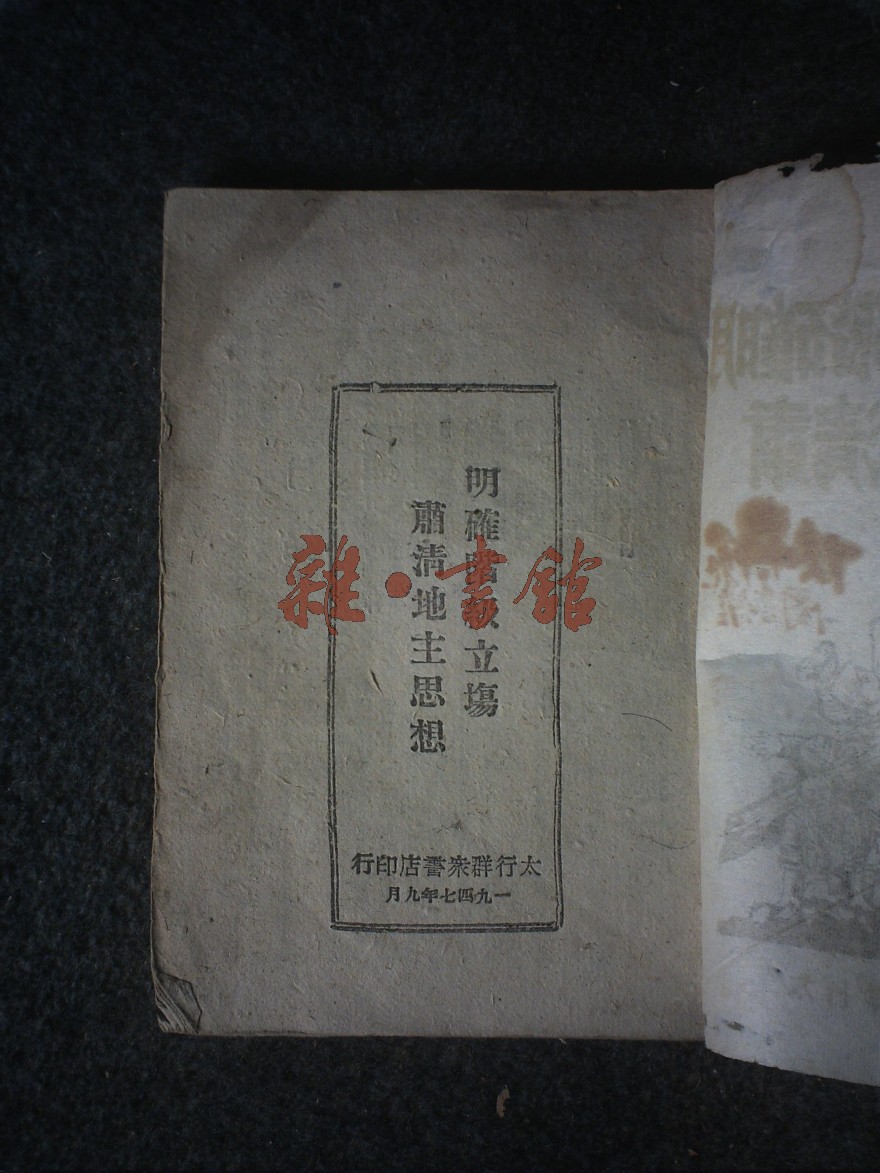 明確階級立塲
肅清地主思想
太行群衆書店印行
一九四七年九月
雜·書館